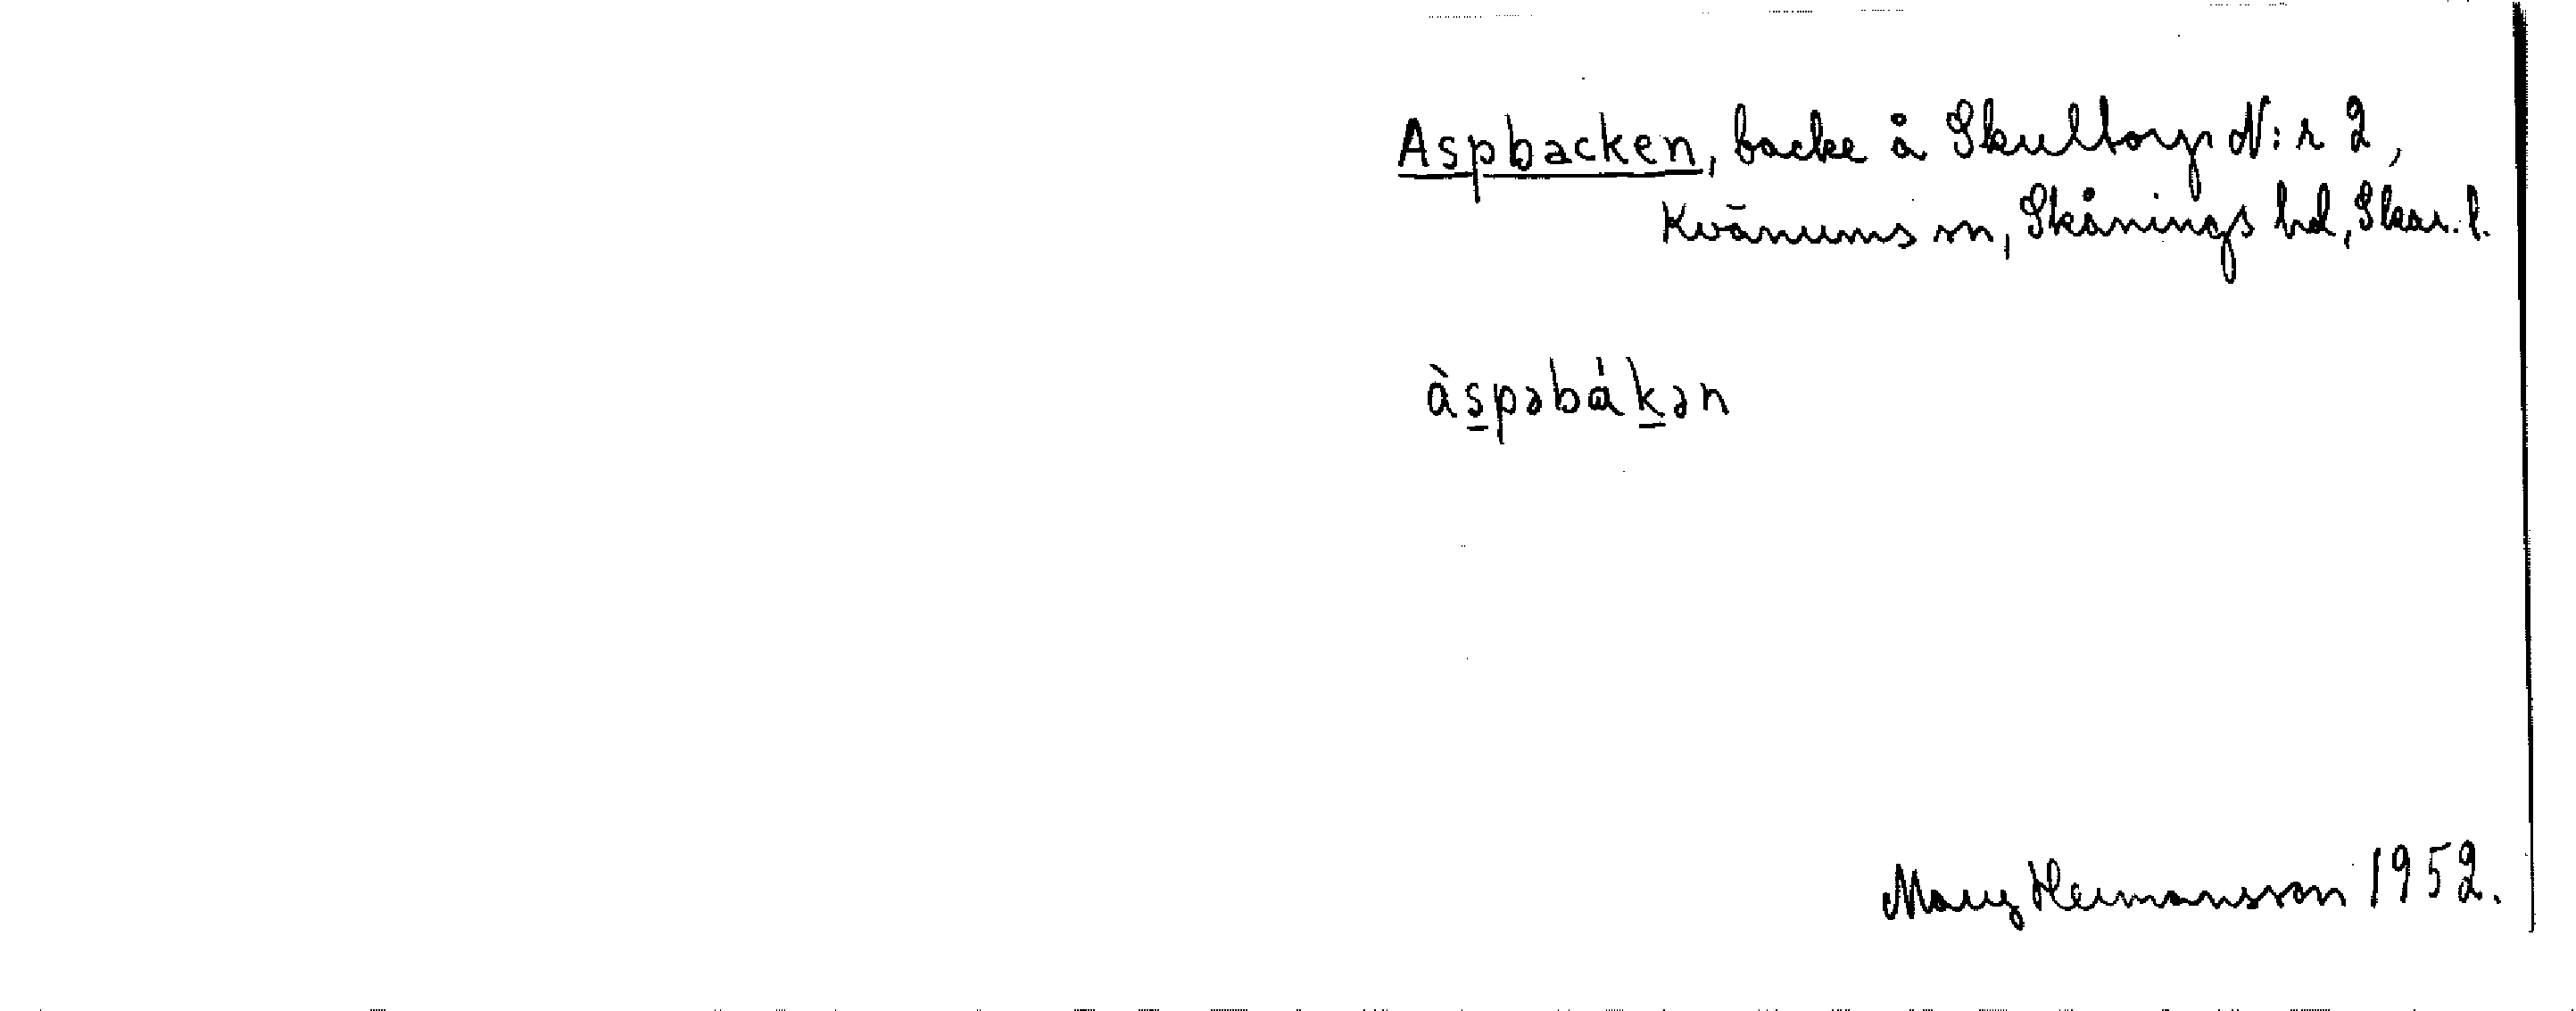 Aspbacken, backe å Skultorp N:r 2,
Kvänums sn, Skånings hd, Skar. l.
àspəbákən
Mary Hermansson 1952.